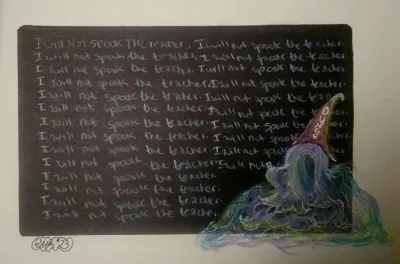 I Will NOT SPOOK THE teacher. I will not spook the teacher.
I will not spook the teacher. I will not spook the teacher.
I will not spook the teacher. I will not spook the teacher.
I will not spook the teacher. I will not spook the teacher.
I will not spook the teacher. I will not spook the teacher.
I will not spook the teacher. I will not spook the
I will not spook the teacher. I will not spook
I will not spook the teacher. I will not spook
I will not spook the teacher. I will not
I will not spook the teacher.
I will not spook the teacher.
I will not spook the teacher.
I will not spook the teacher.
DUNCE